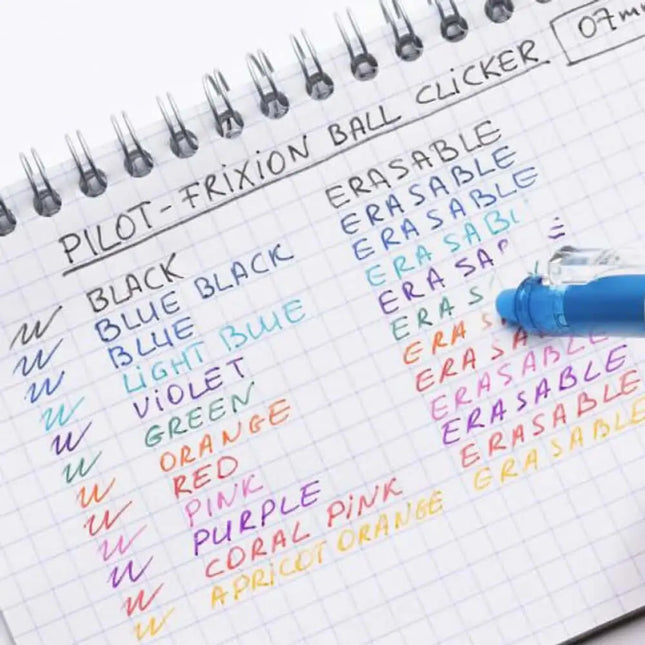 PILOT-FRIXION BALL CLICKER 07
BLACK ERASABLE
BLUE BLACK ERASABLE
BLUE ERASABLE
LIGHT BLUE ERASABL
VIOLET ERASA
GREEN ERAS
ORANGE ERAS
RED ERASA
PINK ERASABLE
PURPLE ERASABLE
CORAL PINK ERASABLE
APRICOT ORANGE ERASABLE